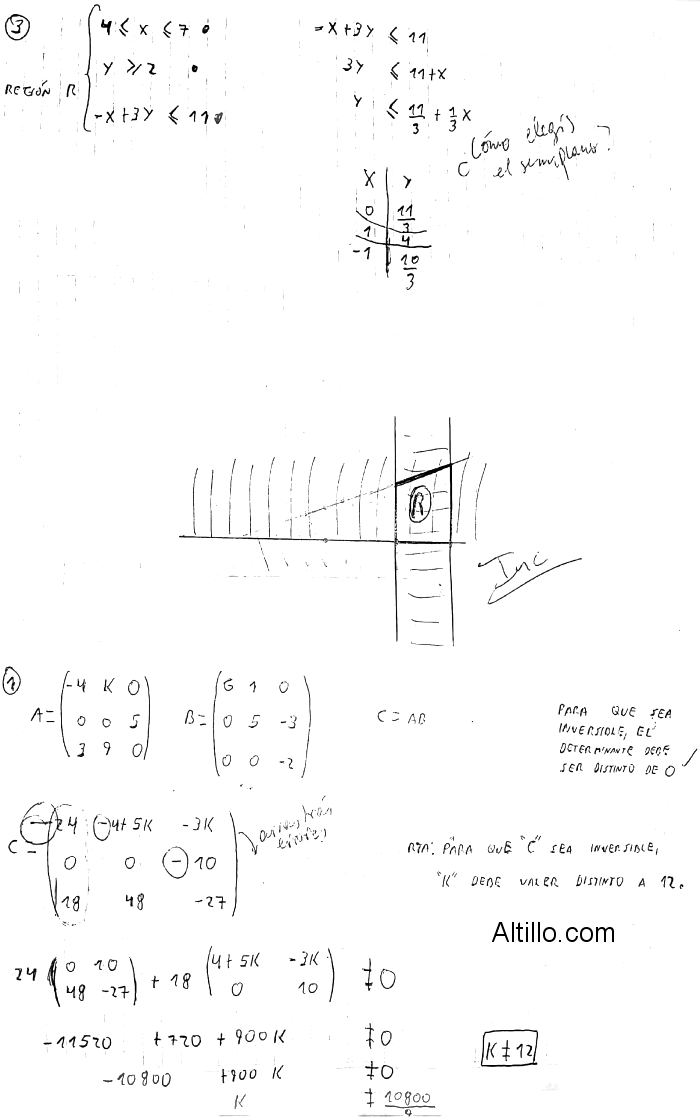 ③
REGIÓN R { 4 ≤ x ≤ 7
y ≥ 2
-x+3y ≤ 11
-x+3y ≤ 11
3y ≤ 11+x
y ≤ 11/3 + 1/3 x
Cómo elegís
el semiplano?
X | Y
0 | 11/3
1 | 4
-1 | 10/3
R
Inc
①
A = (-4 K 0
0 0 5
3 9 0)
B = (6 1 0
0 5 -3
0 0 -2)
C = AB
PARA QUE SEA
INVERSIBLE, EL
DETERMINANTE DEBE
SER DISTINTO DE 0 ✓
C = (-24 -4+5K -3K
0 0 -10
18 48 -27)
RTA: PARA QUE "C" SEA INVERSIBLE,
"K" DEBE VALER DISTINTO A 12.
Altillo.com
24 (0 10
48 -27) + 18 (4+5K -3K
0 10) ≠ 0
-11520 +720 +900K ≠ 0
-10800 +900 K ≠ 0
K ≠ 10800/9
K ≠ 12